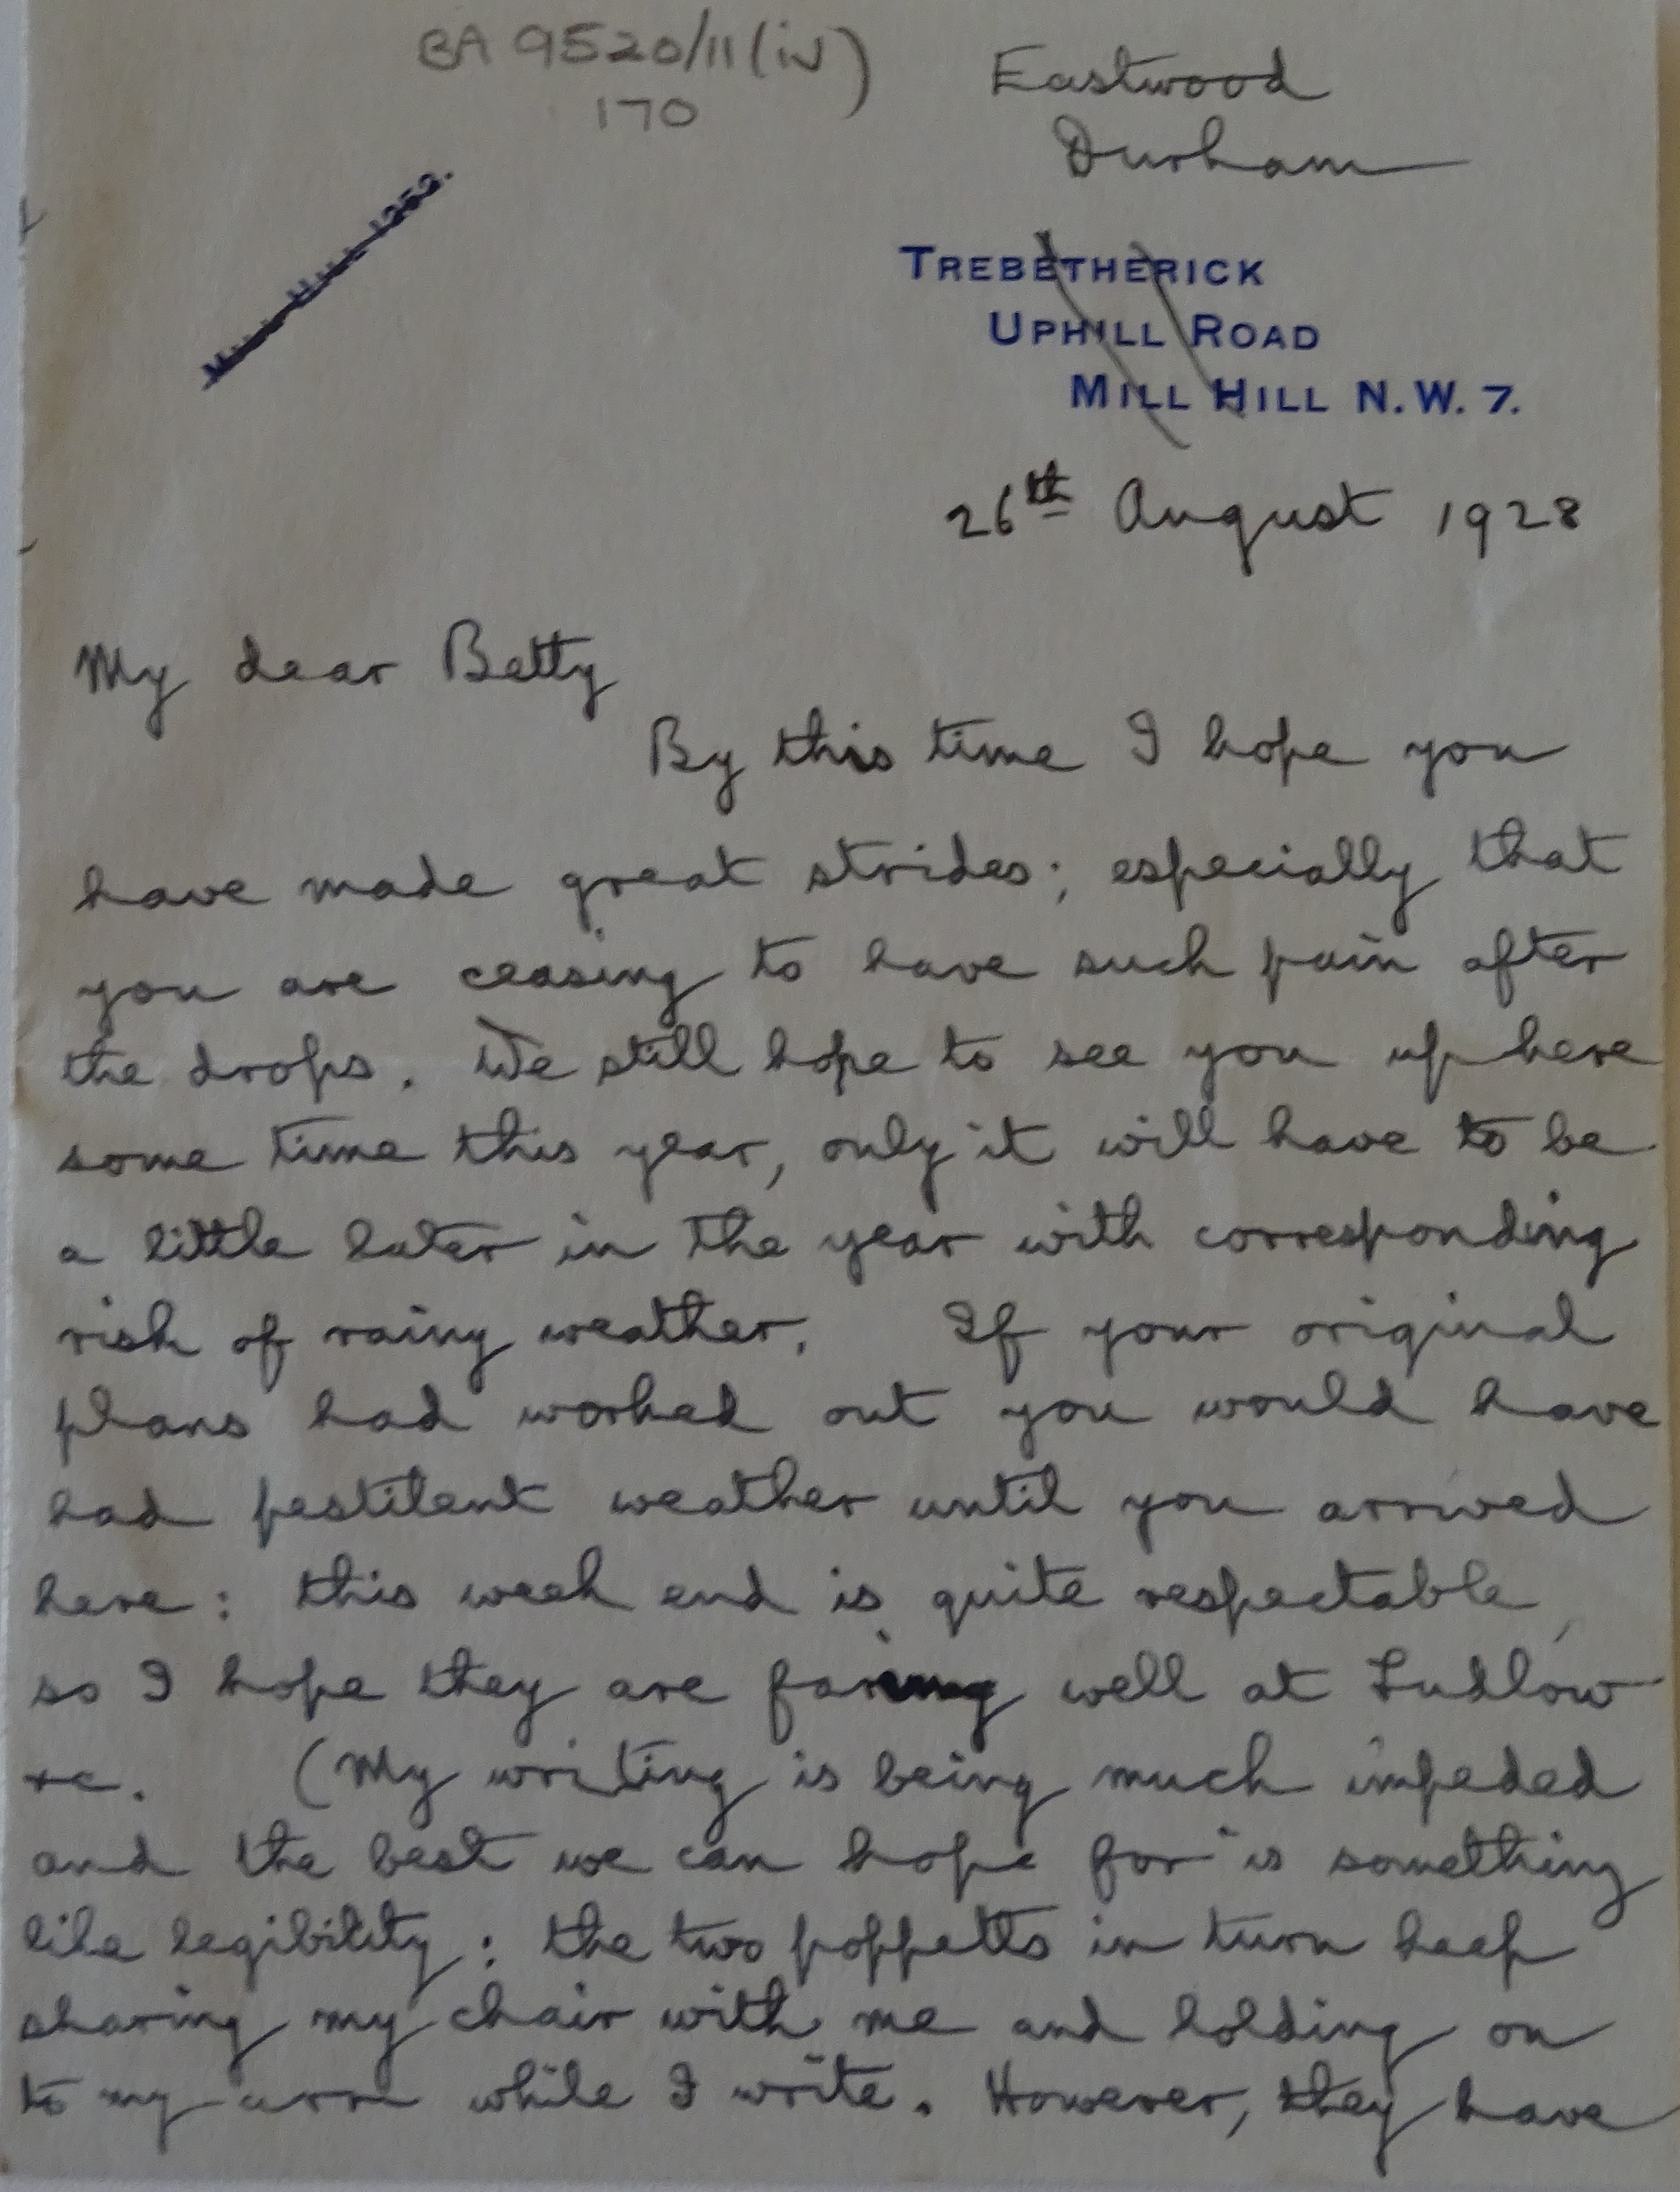 BA 9520/11(iv)
170
Eastwood
Durham
MILL HILL 1253.
TREBETHERICK
UPHILL ROAD
MILL HILL N.W. 7.
26th August 1928
My dear Betty
By this time I hope you
have made great strides; especially that
you are ceasing to have such pain after
the drops. We still hope to see you up here
some time this year, only it will have to be
a little later in the year with corresponding
risk of rainy weather. If your original
plans had worked out you would have
had pestilent weather until you arrived
here: this week end is quite respectable,
so I hope they are faring well at Ludlow
&c. (My writing is being much impeded
and the best we can hope for is something
like legibility: the two poppetts in turn keep
sharing my chair with me and holding on
to my arm while I write. However, they have